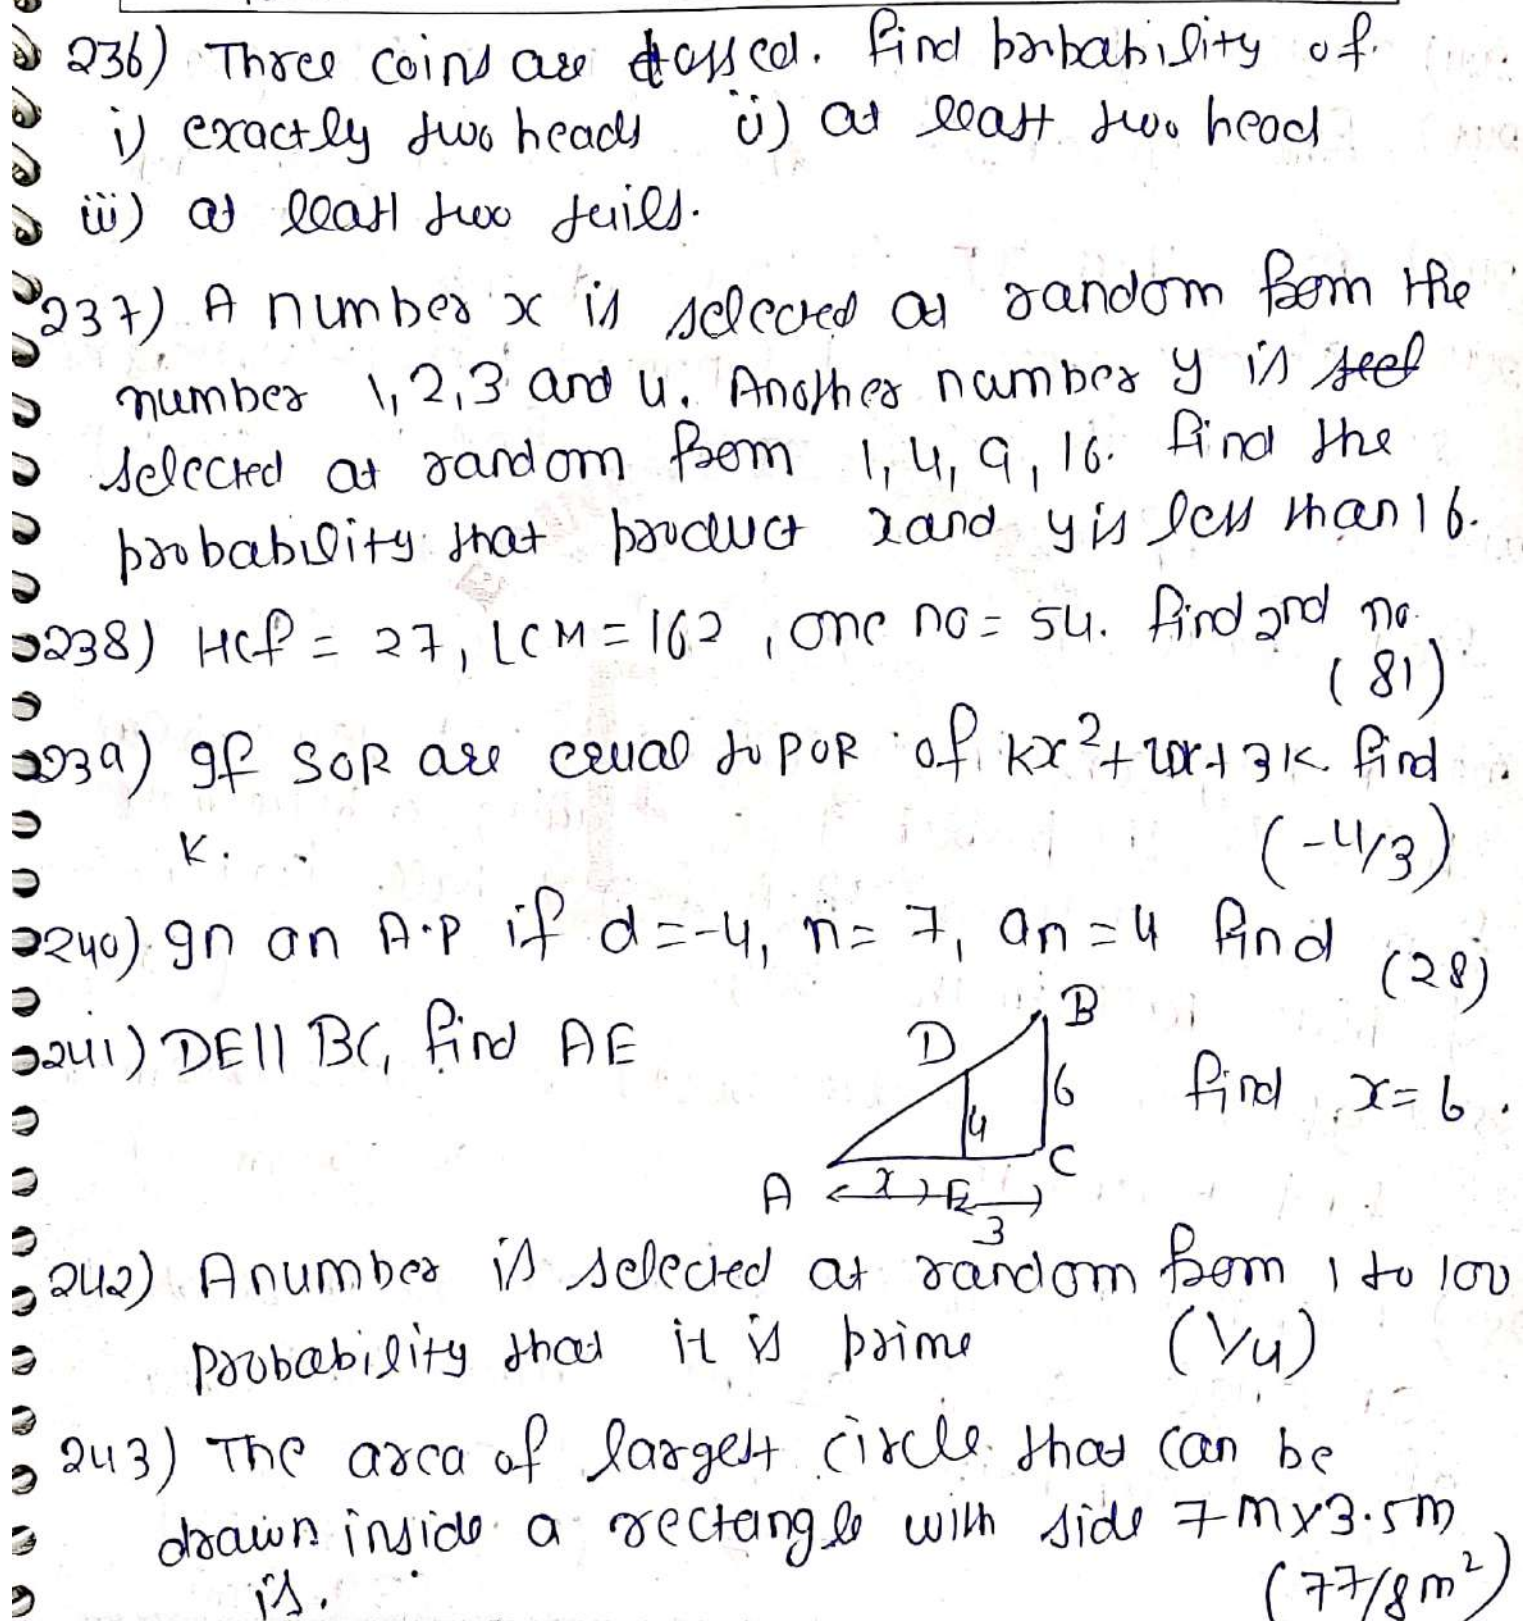 236) Three coins are tossed. find probability of
i) exactly two heads ii) at least two head
iii) at least two tails.
237) A number x is selected at random from the
number 1, 2, 3 and 4. Another number y is
selected at random from 1, 4, 9, 16. find the
probability that product x and y is less than 16.
238) HCF = 27, LCM = 162, one no = 54. find 2nd no.
(81)
239) If SOR are equal to POR of kx²+ x+3k. find
k. (-4/3)
240) In an A.P if d = -4, n = 7, an = 4 find (28)
241) DE || BC, find AE find x = 6.
D B
4 6
A x E C
3
242) A number is selected at random from 1 to 100
probability that it is prime (1/4)
243) The area of largest circle that can be
drawn inside a rectangle with side 7m x 3.5m
is. (77/8 m²)